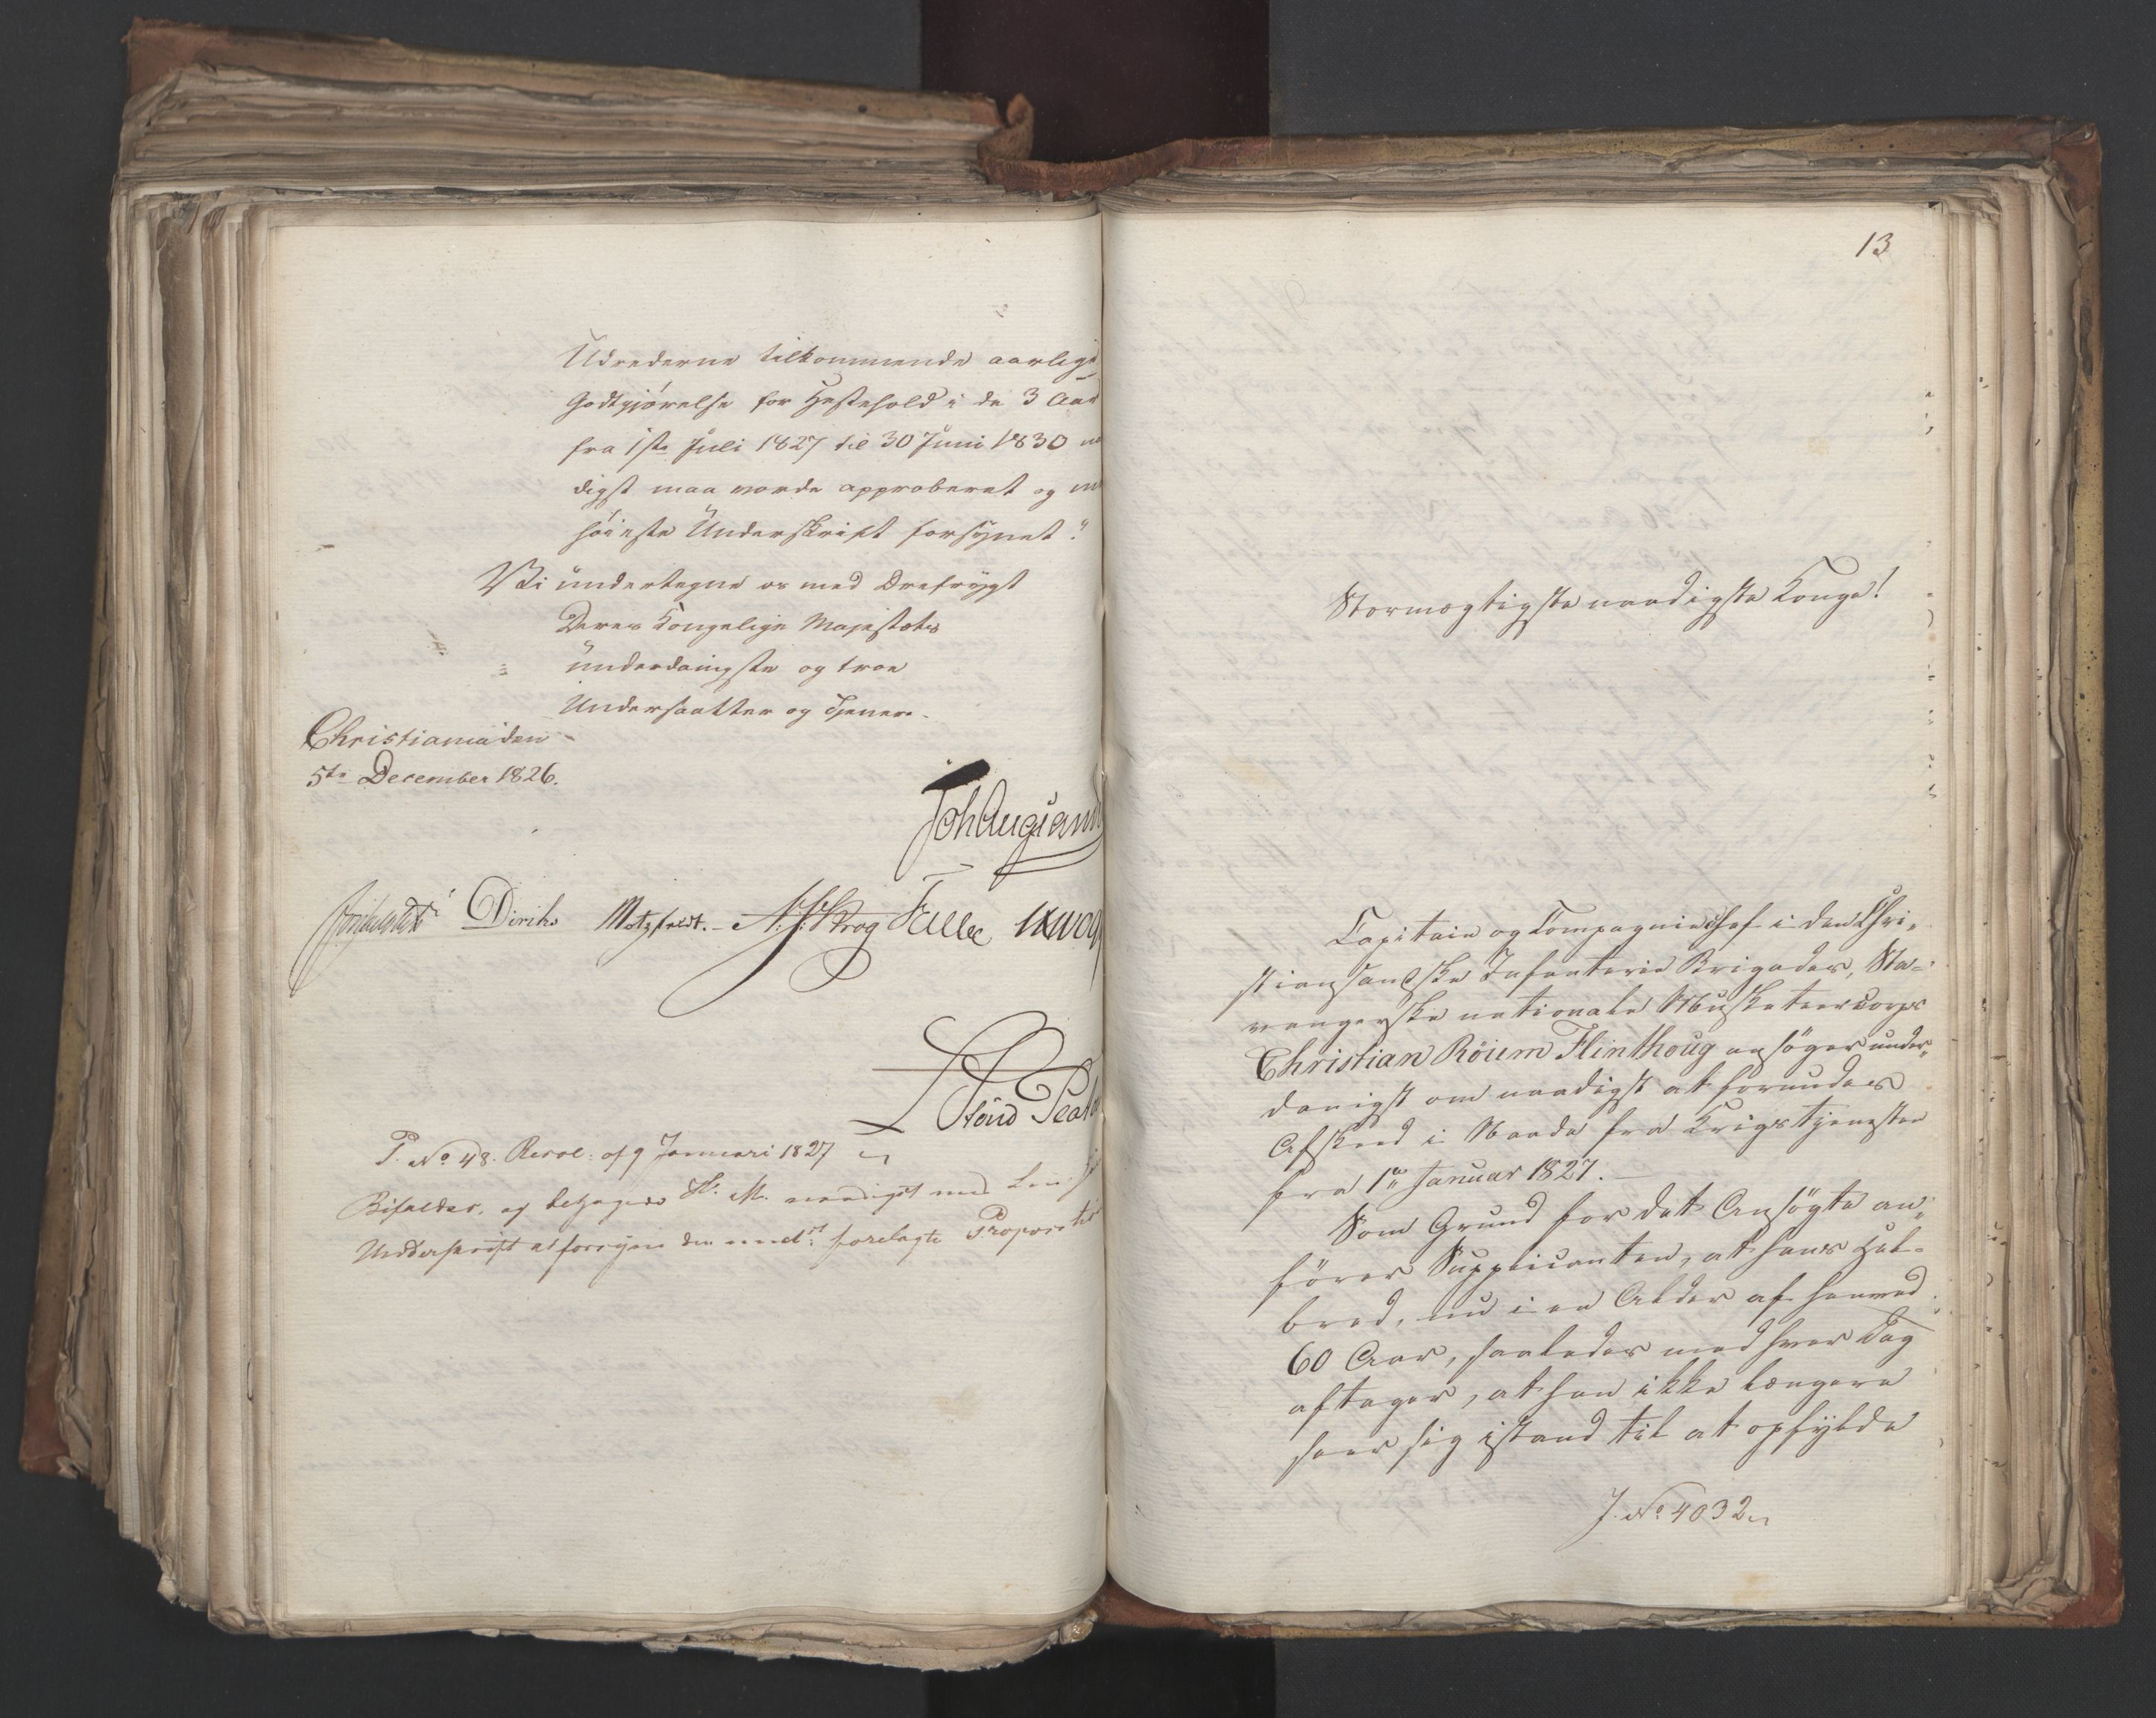 Udrederne tilkommende aarlige
Godtgjörelse for Hestehold i de 3 Aar
fra 1ste Juli 1827 til 30 Juni 1830
digst maa vorde approberet og
höieste Underskrift forsynet."
Vi undertegne os med Ærefrygt
Deres Kongelige Majestæts
underdanigste og troe
Undersaatter og Tjenere.
Christiania den
5te December 1826.
Joh Aug Sand
Diriks Motzfeldt. A. J. Krog Fasting
P. No 48. Resol: af 9 Januari 1827
Bifaldes, og behagede H. M. naadigst med
Underskrift at forsyne den underd:st forelagte Proposition
13
Stormægtigste naadigste Konge!
Capitain og Compagniechef i den Chri„
stiansandske Infanterie Brigades, Sta-
vangerske nationale Musketeercorps
Christian Röiem Flinthoug ansöger under„
danigst om naadigst at forundes
Afsked i Naade fra Krigstjenesten
fra 1te Januar 1827.
Som Grund for det Ansögte an„
förer Supplicanten, at hans Hel-
bred, nu i en Alder af henved
60 Aar, saaledes med hver Dag
aftager, at han ikke længere
seer sig istand til at opfylde
J. No 4032